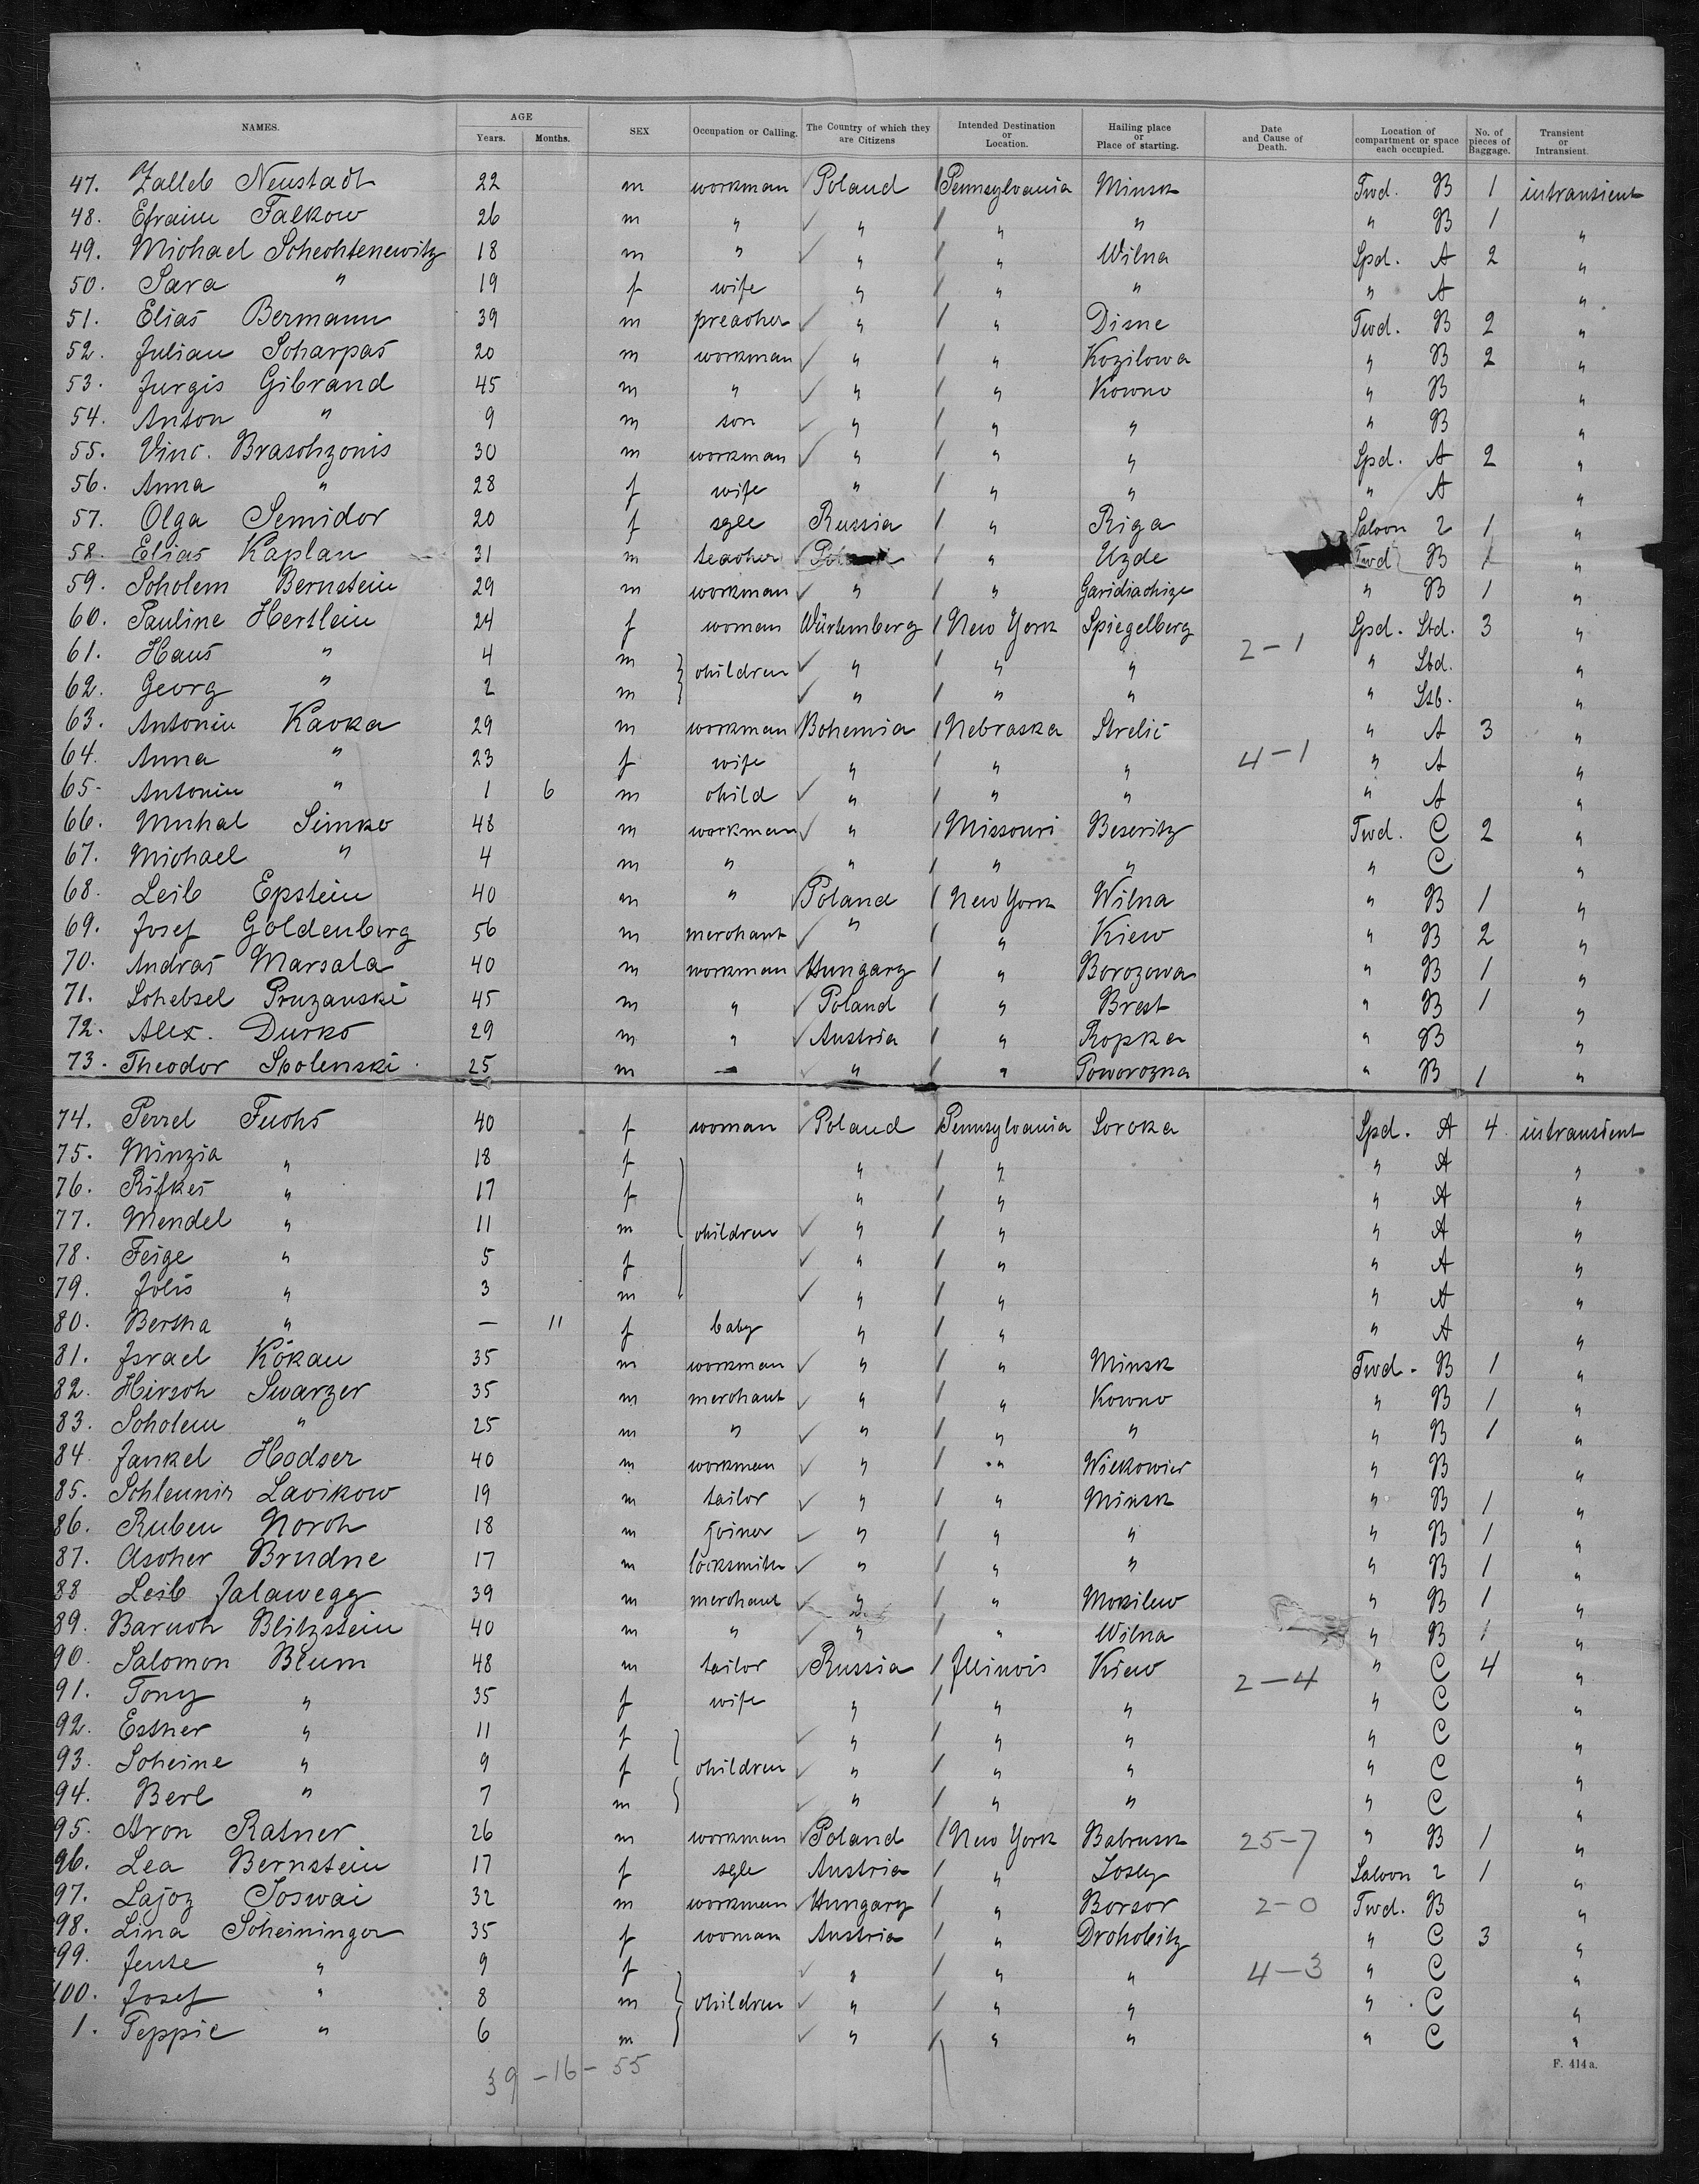 NAMES. AGE Years. Months. SEX Occupation or Calling. The Country of which they are Citizens Intended Destination or Location. Hailing place or Place of starting. Date and Cause of Death. Location of compartment or space each occupied. No. of pieces of Baggage. Transient or Intransient.
47. Zalleb Neustadt 22 m workman Poland Pennsylvania Minsk Twd. B 1 intransient
48. Efraim Falkow 26 m " " " " " B 1 "
49. Michael Schechtenewitz 18 m " " " Wilna Spd. A 2 "
50. Sara " 19 f wife " " " " A "
51. Elias Bermann 39 m preacher " " Disne Twd. B 2 "
52. Julian Scharpas 20 m workman " " Kozilowa " B 2 "
53. Jurgis Gibrand 45 m " " " Kowno " B "
54. Anton " 9 m son " " " " B "
55. Vinc. Braschzonis 30 m workman " " " Spd. A 2 "
56. Anna " 28 f wife " " " " A "
57. Olga Semidor 20 f sgle Russia " Riga Saloon 2 1 "
58. Elias Kaplan 31 m teacher Poland " Uzde Twd B 1 "
59. Scholem Bernstein 29 m workman " " Garidiachize " B 1 "
60. Pauline Hertlein 24 f woman Würtemberg New York Spiegelberg Spd. Std. 3 "
61. Hans " 4 m children " " " 2-1 " Stb. "
62. Georg " 2 m " " " " Stb. "
63. Antonin Kavka 29 m workman Bohemia Nebraska Strelic " A 3 "
64. Anna " 23 f wife " " " 4-1 " A "
65. Antonin " 1 6 m child " " " " A "
66. Muhal Simko 48 m workman " Missouri Beseritz Twd. C 2 "
67. Michael " 4 m " " " " " C "
68. Leib Epstein 40 m " Poland New York Wilna " B 1 "
69. Josef Goldenberg 56 m merchant " " Kiew " B 2 "
70. Andras Marsala 40 m workman Hungary " Borozowa " B 1 "
71. Schebsel Pruzanski 45 m " Poland " Brest " B 1 "
72. Alex. Durko 29 m " Austria " Ropka " B "
73. Theodor Scolenski 25 m " " " Poworozna " B 1 "
74. Perrel Fuchs 40 f woman Poland Pennsylvania Soroka Spd. A 4 intransient
75. Minzia " 18 f " " " A "
76. Rifkes " 17 f " " " A "
77. Mendel " 11 m children " " " A "
78. Feige " 5 f " " " A "
79. Jolis " 3 m " " " A "
80. Bertha " — 11 f baby " " " A "
81. Israel Kökan 35 m workman " " Minsk Twd. B 1 "
82. Hirsch Swarzer 35 m merchant " " Kowno " B 1 "
83. Scholem " 25 m " " " " " B 1 "
84. Jankel Hodser 40 m workman " " Wilkowicz " B "
85. Schleumir Lavikow 19 m tailor " " Minsk " B 1 "
86. Ruben Noroh 18 m joiner " " " " B 1 "
87. Ascher Brudne 17 m locksmith " " " " B 1 "
88 Leib Jalawegg 39 m merchant " " Mokilew " B 1 "
89. Baruch Blitzstein 40 m " " " Wilna " B 1 "
90. Salomon Blum 48 m tailor Russia Illinois Kiew 2-4 " C 4 "
91. Tony " 35 f wife " " " " C "
92. Esther " 11 f " " " " C "
93. Scheine " 9 f children " " " " C "
94. Berl " 7 m " " " " C "
95. Aron Ratner 26 m workman Poland New York Babrusk 25-7 " B 1 "
96. Lea Bernstein 17 f sgle Austria " Josly Saloon 2 1 "
97. Lajoz Joswai 32 m workman Hungary " Borsor 2-0 Twd. B "
98. Lina Scheininger 35 f woman Austria " Drohobitz " C 3 "
99. Jente " 9 f " " " 4-3 " C "
100. Josef " 8 m children " " " " C "
1. Peppie " 6 m " " " " C "
39 - 16 - 55
F. 414 a.